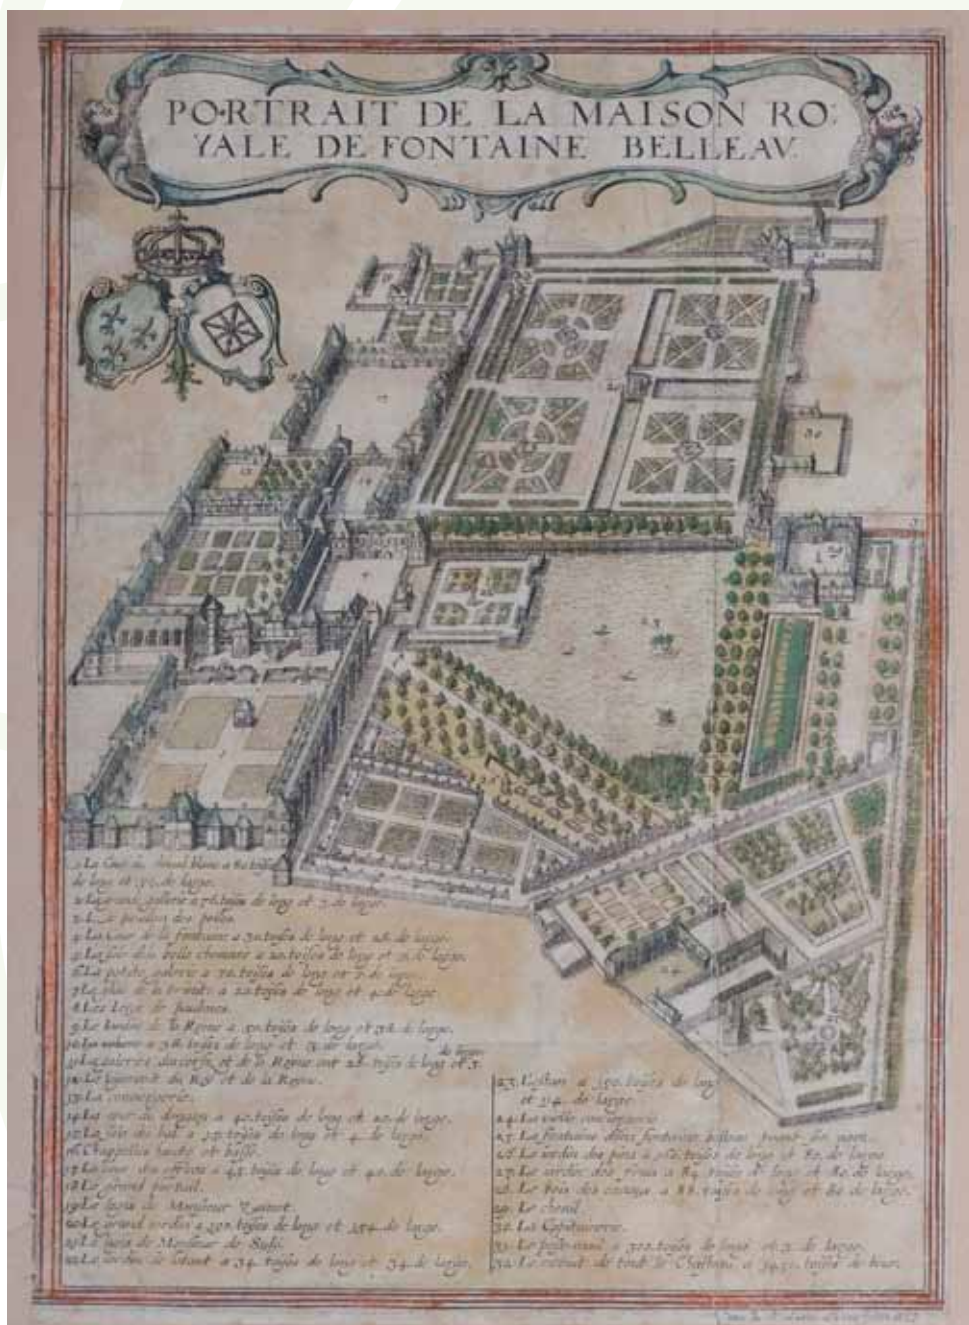 PORTRAIT DE LA MAISON RO:
YALE DE FONTAINE BELLEAV.
1. La Court du cheval blanc a 80 toises
de long et de large.
2. La grande galerie a toises de long et 3. de large.
3. Le pavillon des poiles.
4. La Cour de la fontaine a 30. toises de long et 28. de large.
5. La sale de la belle cheminee a 20. toises de long et de large.
6. La petite galerie a 30. toises de long et 3. de large.
7. La sale de la trinité a 20. toises de long et 4. de large.
8. Les Loges
9. Le Iardin de la Reine a toises de long et 38. de large.
10. La voliere a 38. toises de long et 3. de large.
11. La galeries du cerfs, et de la Reine ont toises de long et 3.
de large.
12. Le logement du Roy et de la Reine.
13. La conciergerie.
14. La cour du dongon a 40. toises de long et 20. de large.
15. La sale du bal a 15. toises de long et 4. de large.
16. Chappelles haute et basse.
17. La cour des offices a 45. toises de long et 40. de large.
18. Le grand portail.
19. Le logis de Monsieur Zamet.
20. Le grand iardin a toises de long et 154. de large.
21. Le logis de Monsieur de Suli.
22. Le iardin de lestant a 34. toises de long et 34. de large.
23. L'estan a toises de long
et 114. de large.
24. La vielle conciergerie
25. La fontaine dont fontaine belleau prent son nom.
26. Le iardin des pins a toises de long et 80. de large.
27. Le iardin des fruis a 84. toises de long et 80. de large.
28. Le bois des canaux a 88. toises de long et 80 de large.
29. Le chenil.
30. La Capitainerie.
31. Le pallemail a 300. toises de long et 3. de large.
32. Le circuit de tout le Chasteau a toises de tour.